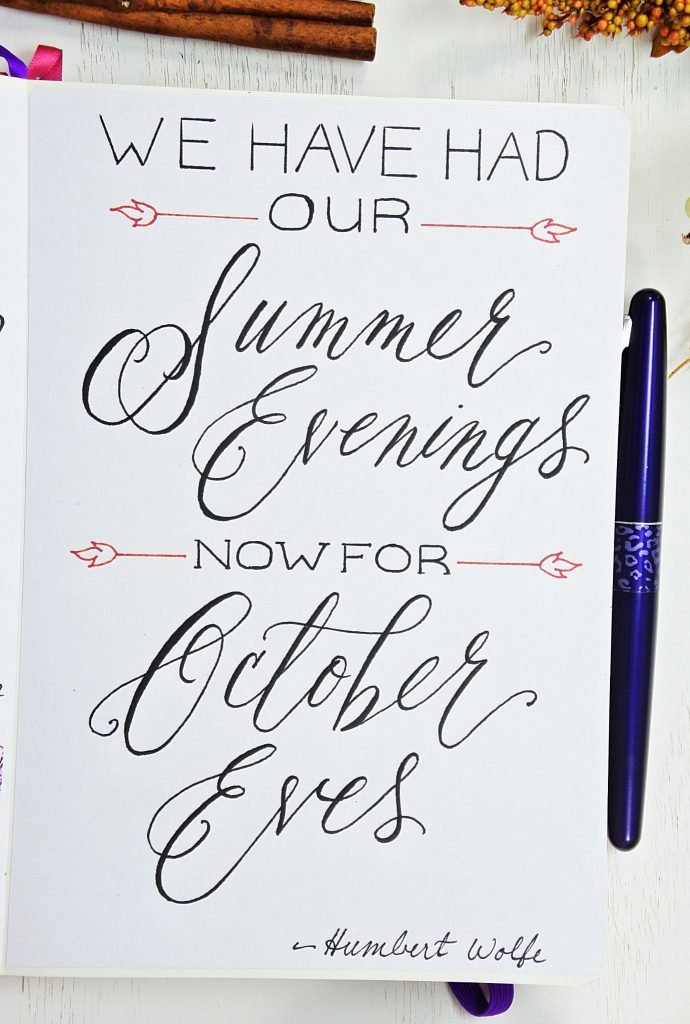 WE HAVE HAD
OUR
Summer
Evenings
NOW FOR
October
Eves
~ Humbert Wolfe